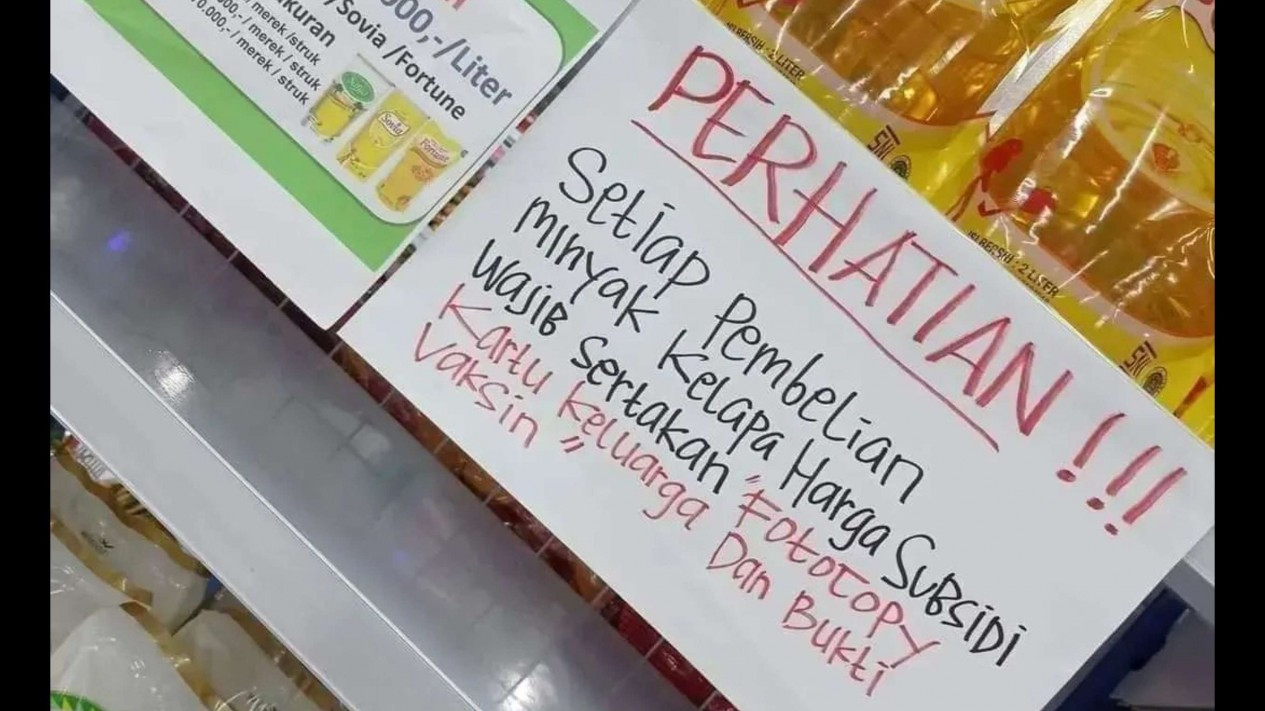 000,-/Liter
/Sovia /Fortune
kuran
000,-/ merek /struk
000,-/ merek / struk
0.000,-/ merek / struk
Sovia
Fortune
PERHATIAN !!!
Setiap Pembelian
minyak Kelapa Harga Subsidi
wajib sertakan "Fotocopy
Kartu keluarga Dan Bukti
Vaksin"
ISI BERSIH : 2 LITER
SNI
ISI BERSIH : 2 LITER
SNI